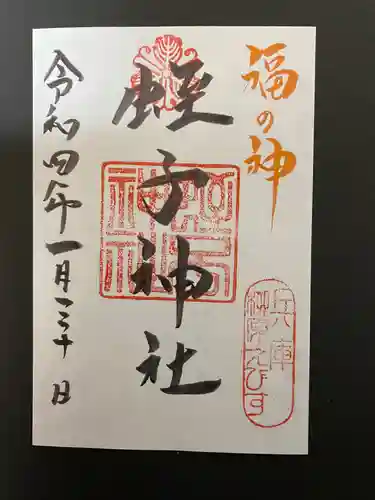 福の神
兵庫
柳原えびす
蛭子神社
令和四年一月三十日